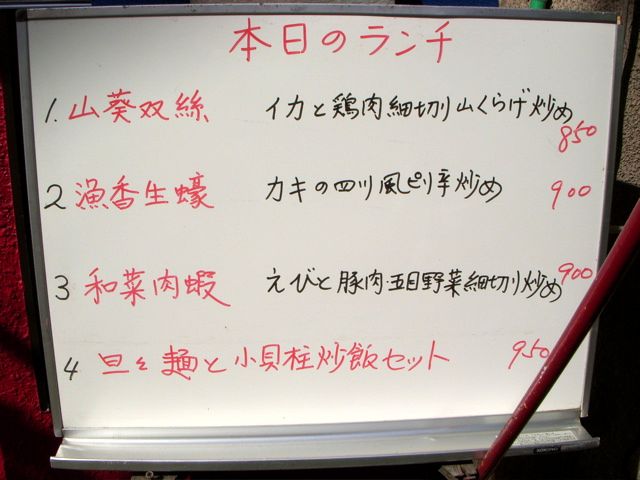 本日のランチ
1. 山葵双絲 イカと鶏肉細切り山くらげ炒め 850
2 漁香生蠔 カキの四川風ピリ辛炒め 900
3 和菜肉蝦 えびと豚肉・五目野菜細切り炒め 900
4 旦々麺と小貝柱炒飯セット 950